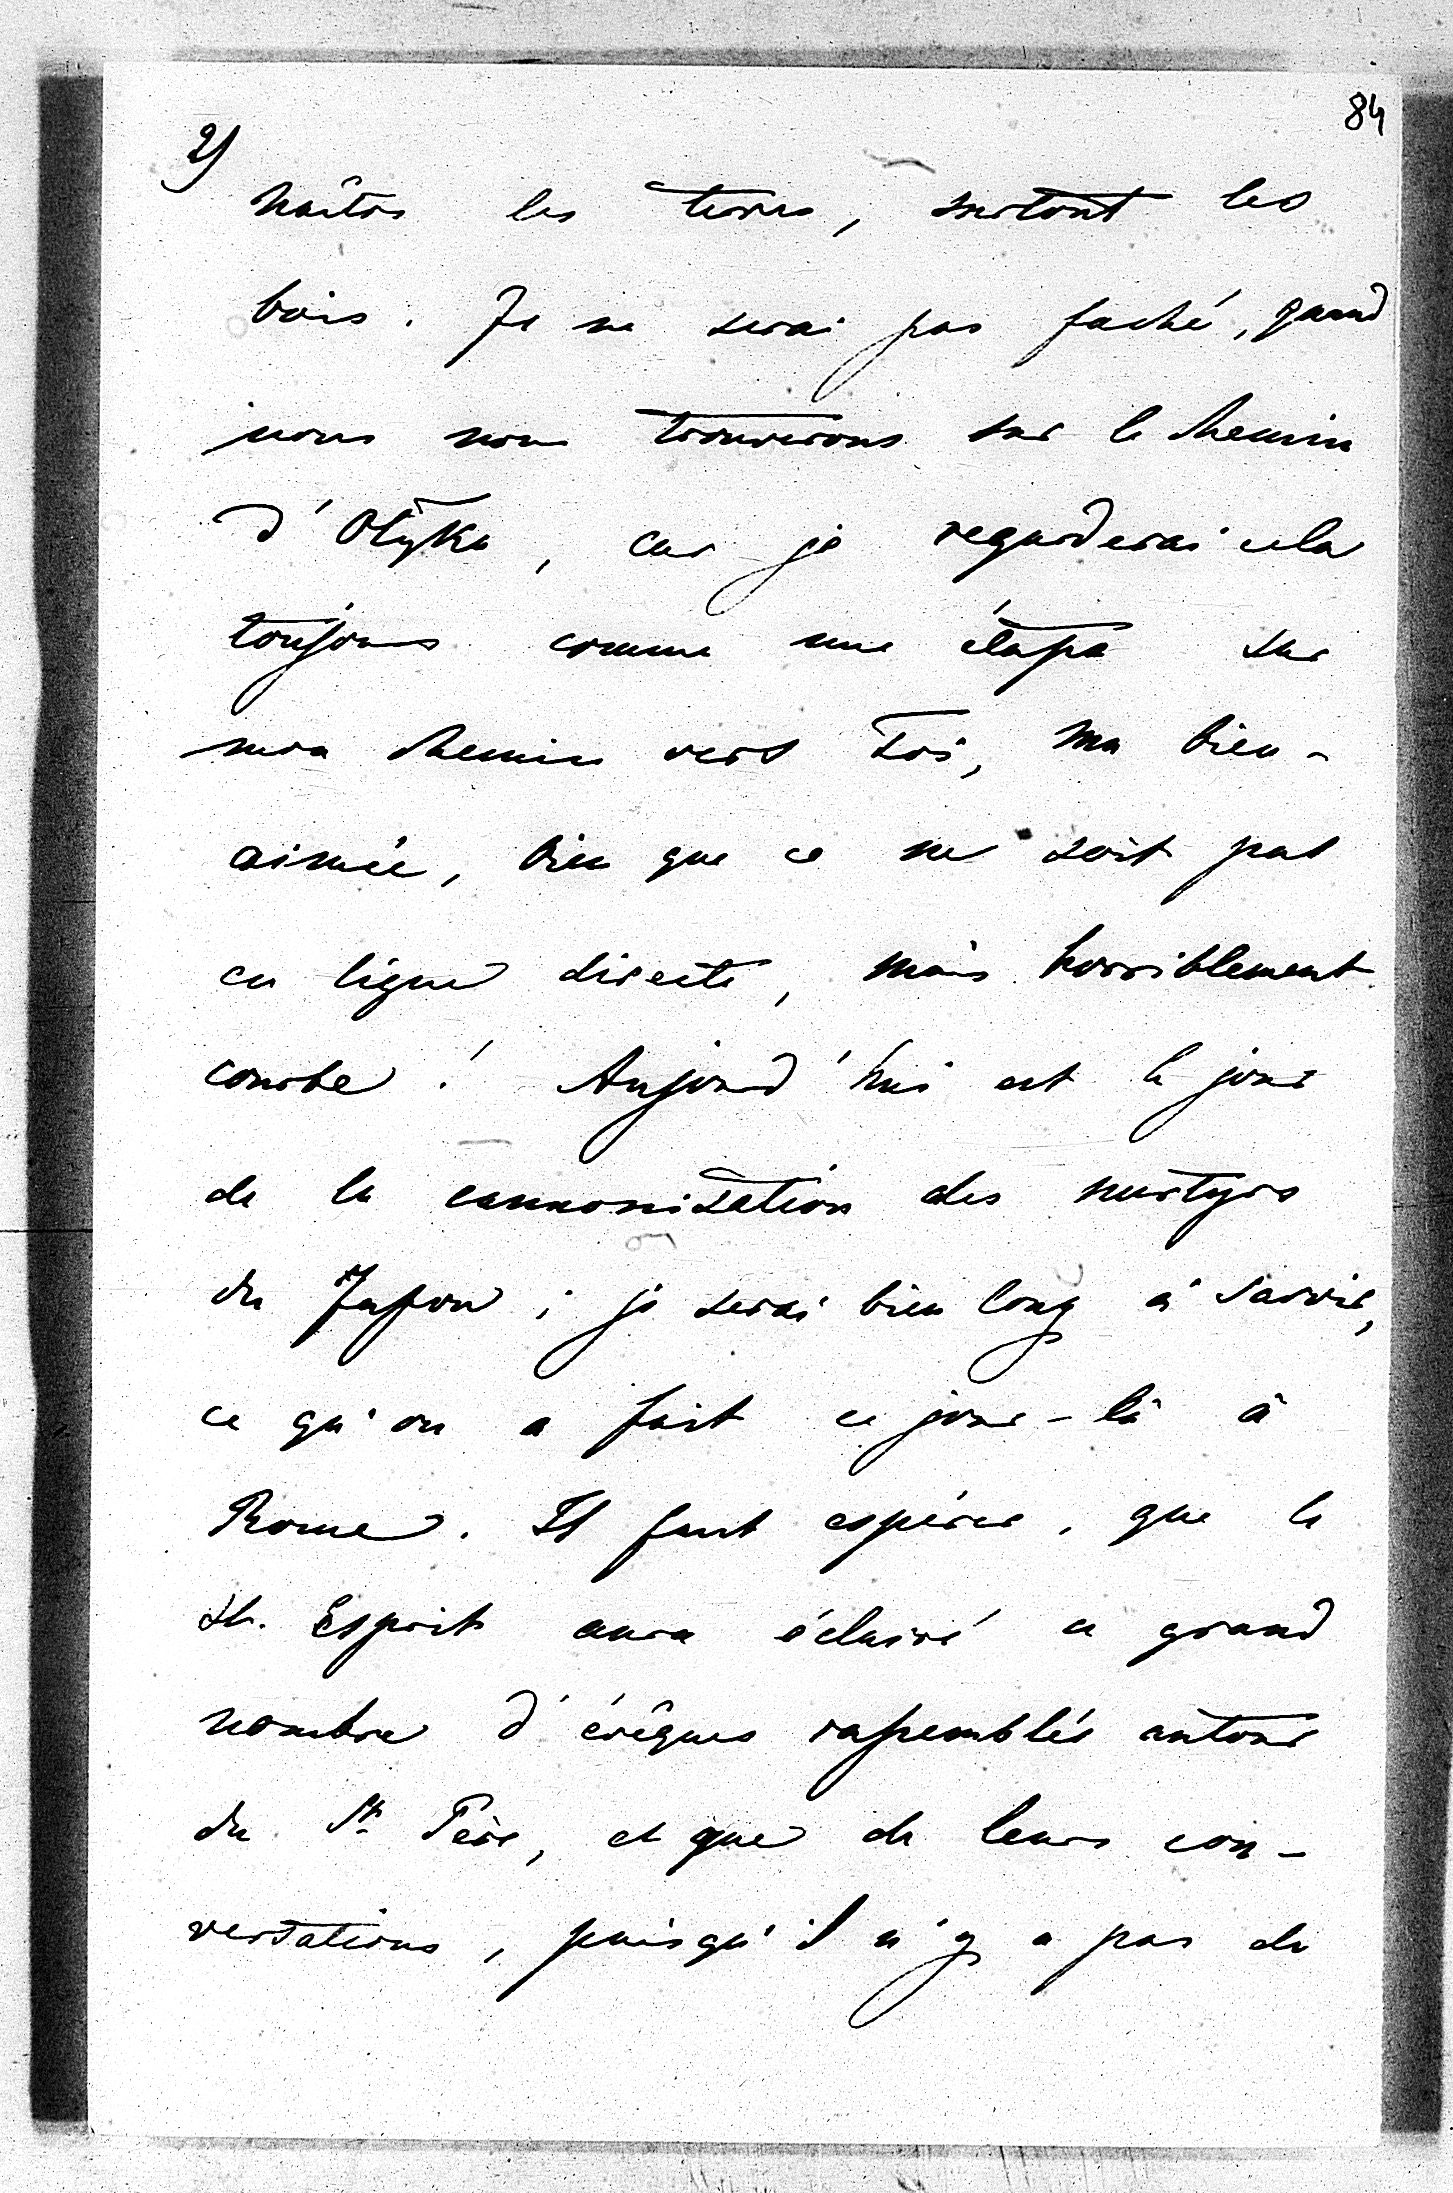 84
2)
naître les terres, surtout les
bois. Je ne serai pas faché, quand
nous nous trouverons sur le chemin
d'Olyka, car je regarderai cela
toujours comme une étape sur
mon chemin vers Toi, ma bien-
aimée, bien que ce ne soit pas
en ligne directe, mais horriblement
courbe! Aujourd'hui est le jour
de la cannonisation des martyrs
du Japon; je serai bien long à savoir,
ce qu'on a fait ce jour-là à
Rome. Il faut espérer, que le
St. Esprit aura éclairé ce grand
nombre d'évêques rassemblés autour
du St Père, et que de leurs con-
versations, puisqu'il n'y a pas de